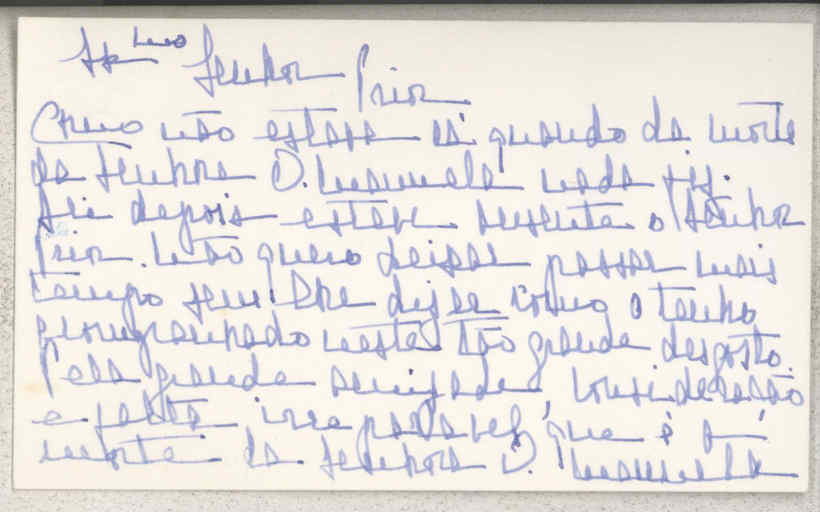 Exmo Senhor Prior
Como não estava cá quando da morte
da Senhora D. Manuela nada fiz.
Sei depois estava ausente o Senhor
Prior. Não quero deixar passar mais
tempo sem lhe dizer como o tenho
acompanhado nesta tão grande desgosto.
Pela grande amizade, consideração
e falta irreparavel, que é a
morte da Senhora D. Manuela